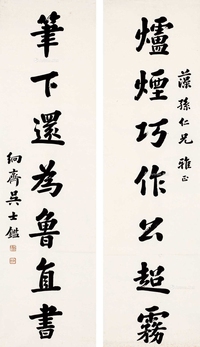 藻孫仁兄雅正
爐煙巧作公超霧
筆下還為魯直書
絅齋吳士鑑